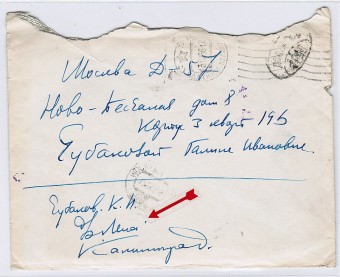 Москва Д-57
Ново-Песчаная дом 8
Корпус 3 кварт 196
Губановой Галине Ивановне.
Губанов. К. И.
Калининград.